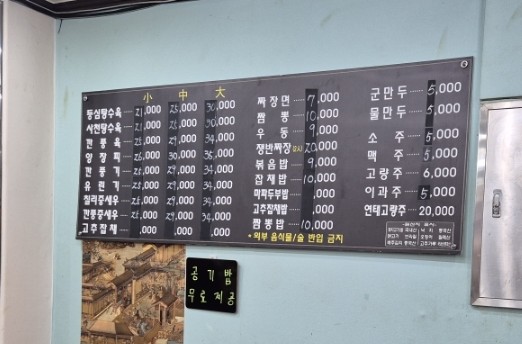 小 中 大
등심탕수육 21,000 25,000 30,000
사천탕수육 21,000 25,000 30,000
깐풍육 25,000 29,000 34,000
양장피 26,000 30,000 35,000
깐풍기 25,000 29,000 34,000
유린기 25,000 29,000 34,000
칠리중새우 ,000 29,000 34,000
깐풍중새우 ,000 29,000 34,000
고추잡채 ,000 ,000 ,000
짜장면 7,000
짬뽕 9,000
우동 9,000
쟁반짜장 20,000
볶음밥 9,000
잡채밥 10,000
마파두부밥 ,000
고추잡채밥 ,000
짬뽕밥 10,000
* 외부 음식물/술 반입 금지
군만두 5,000
물만두 5,000
소주 5,000
맥주 5,000
고량주 6,000
이과주 5,000
연태고량주 20,000
공기밥
무료제공